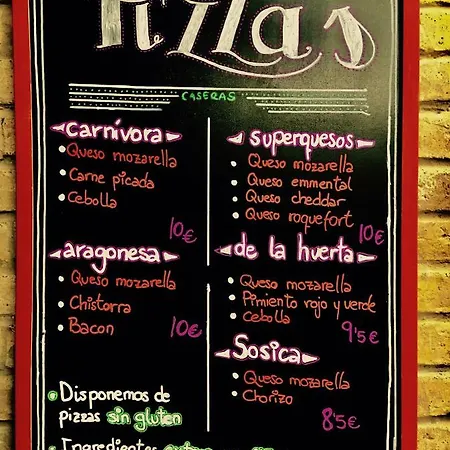 Pizzas
CASERAS
carnívora
Queso mozarella
Carne picada
Cebolla
10€
aragonesa
Queso mozarella
Chistorra
Bacon
10€
superquesos
Queso mozarella
Queso emmental
Queso cheddar
Queso roquefort
10€
de la huerta
Queso mozarella
Pimiento rojo y verde
Cebolla
9'5€
Sosica
Queso mozarella
Chorizo
8'5€
Disponemos de
pizzas sin gluten
Ingredientes